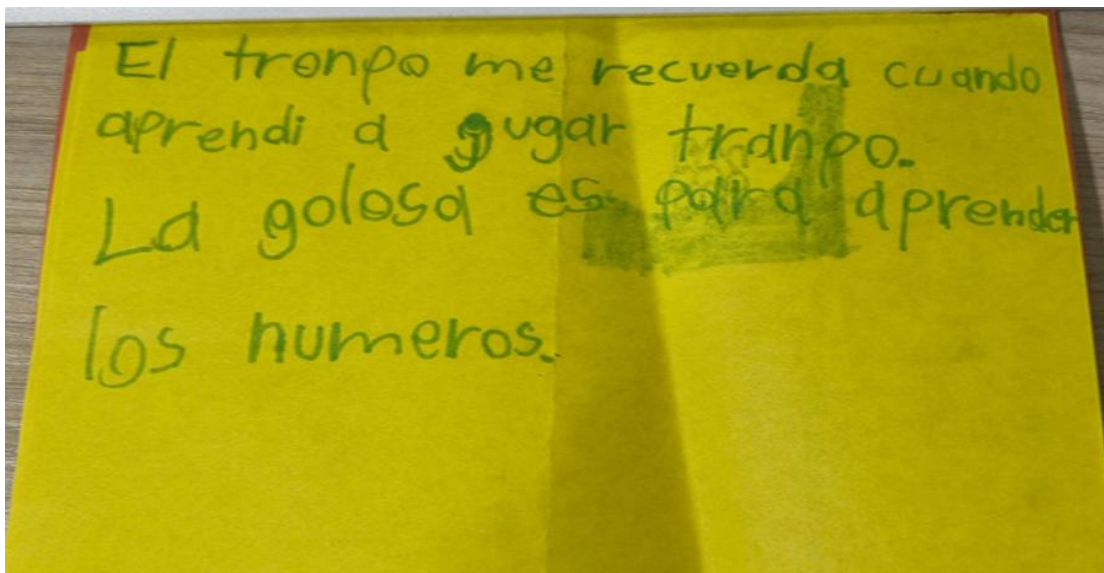 El tronpo me recuerda cuando
aprendi a gugar tranpo.
La golosa es para aprender
los numeros.